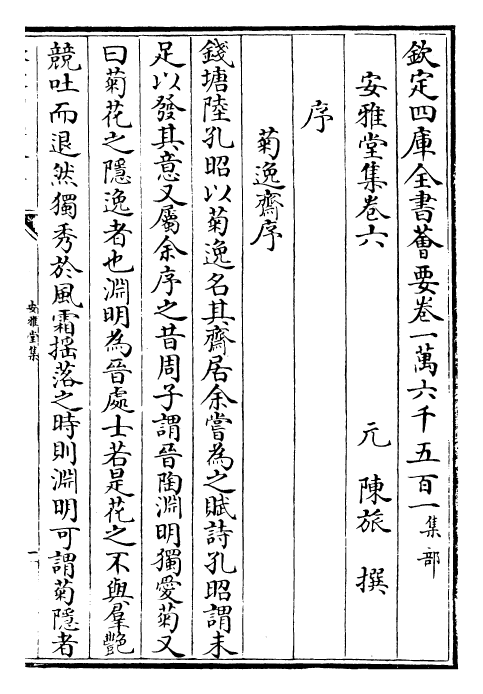 欽定四庫全書薈要卷一萬六千五百一集部
安雅堂集卷六　元　陳旅　撰
序
菊逸齋序
錢塘陸孔昭以菊逸名其齋居余嘗為之賦詩孔昭謂未
足以發其意又屬余序之昔周子謂晉陶淵明獨愛菊又
曰菊花之隱逸者也淵明為晉處士若是花之不與羣艷
競吐而退然獨秀於風霜揺落之時則淵明可謂菊隱者
安雅堂集
一